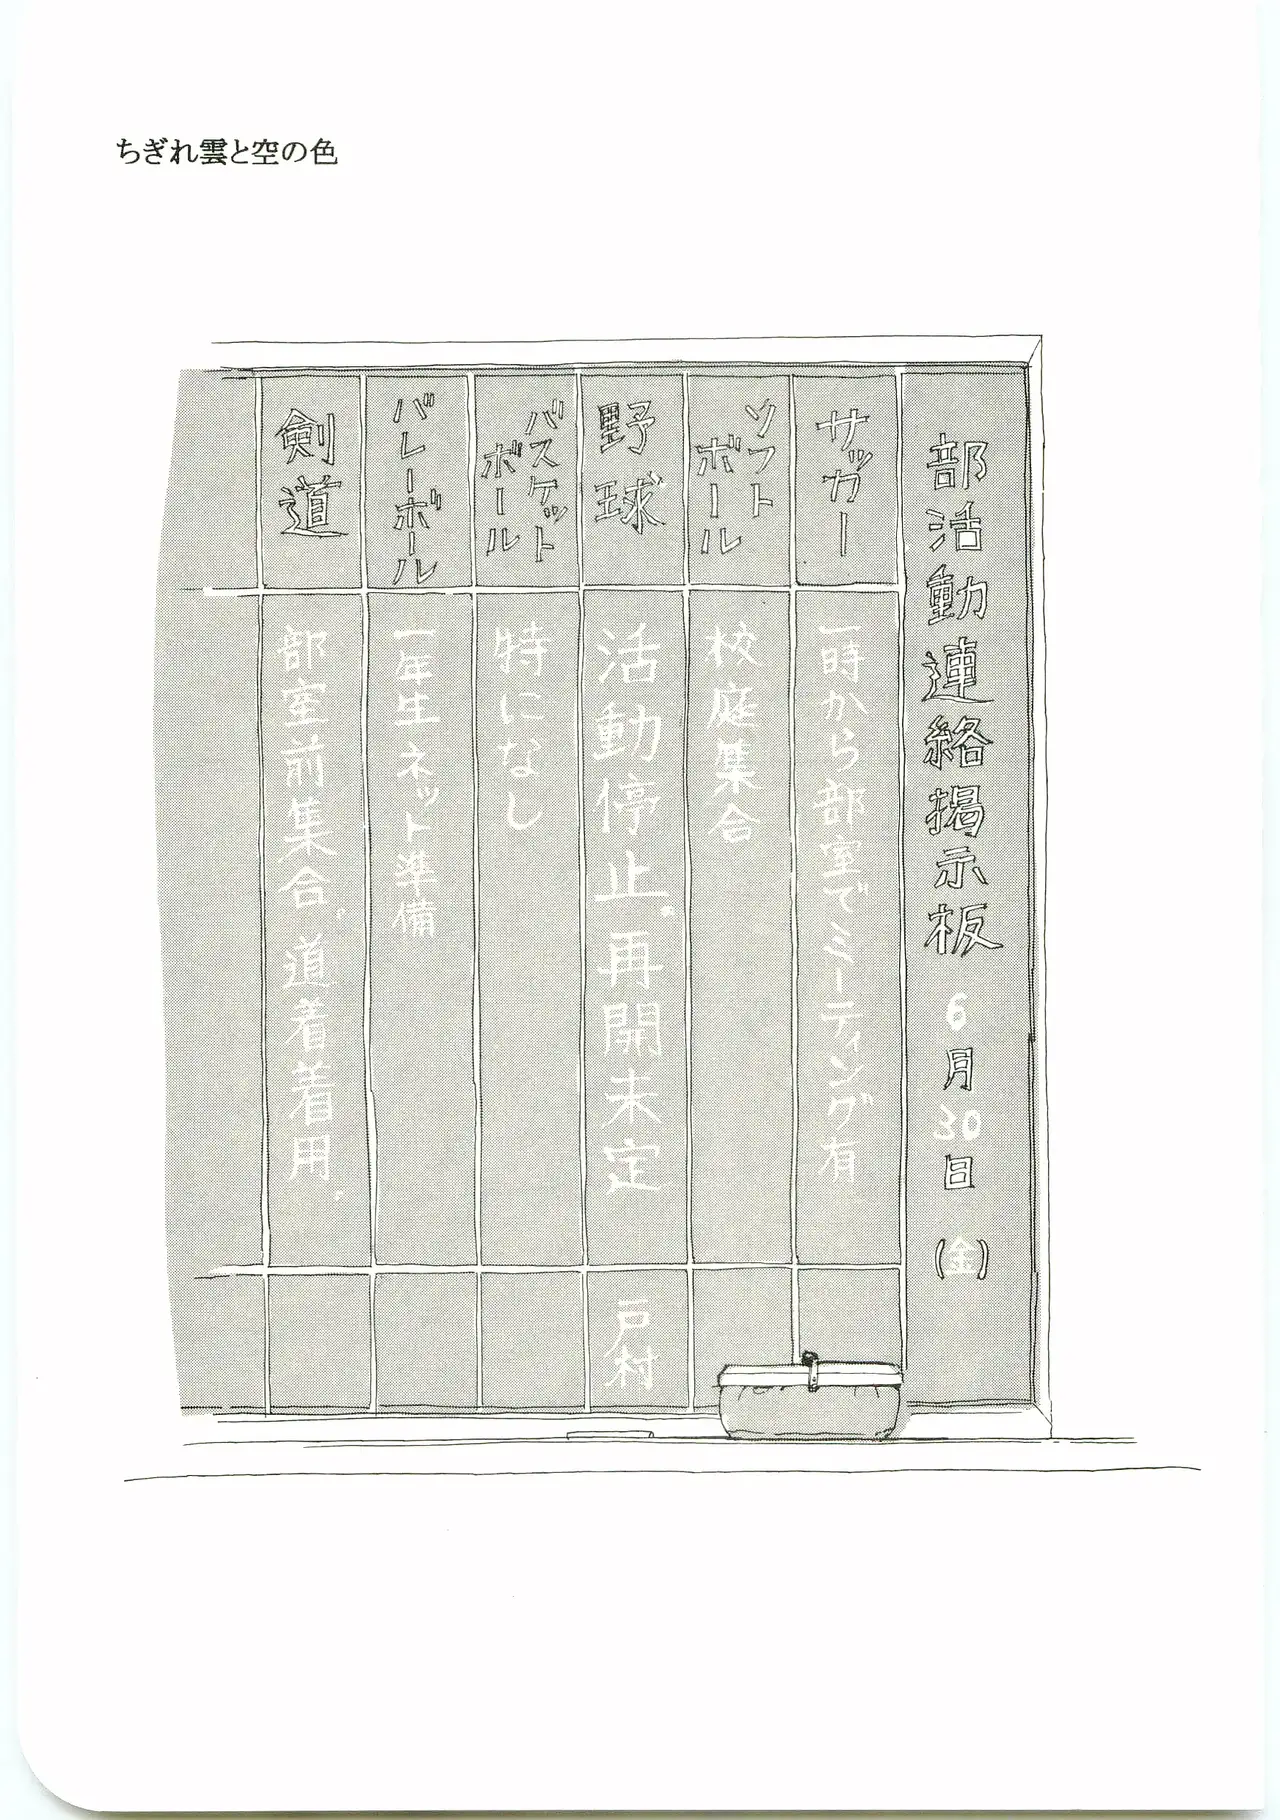 ちぎれ雲と空の色
部活動連絡掲示板 6月30日(金)
サッカー
一時から部室でミーティング有
ソフト
ボール
校庭集合
野球
活動停止。再開未定
戸村
バスケット
ボール
特になし
バレーボール
一年生ネット準備
剣道
部室前集合。道着着用。